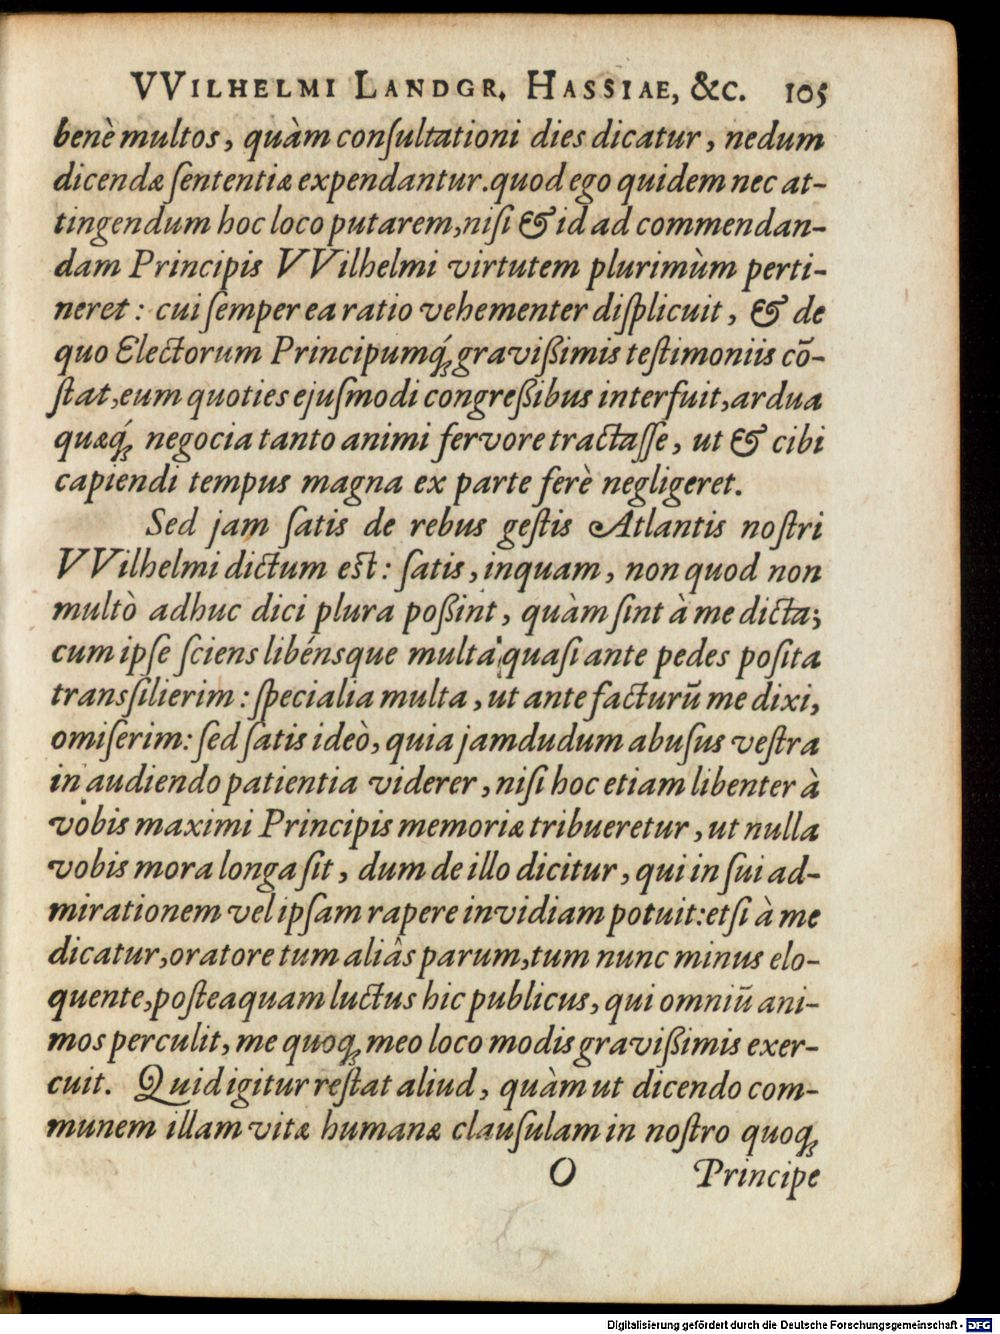 VVILHELMI LANDGR. HASSIAE, &C. 105
benè multos, quàm conſultationi dies dicatur, nedum
dicendæ ſententiæ expendantur. quod ego quidem nec at-
tingendum hoc loco putarem, niſi & id ad commendan-
dam Principis VVilhelmi virtutem plurimùm perti-
neret: cui ſemper ea ratio vehementer diſplicuit, & de
quo Electorum Principumq́; gravißimis teſtimoniis cõ-
ſtat, eum quoties ejuſmodi congreßibus interfuit, ardua
quæq́; negocia tanto animi fervore tractaſſe, ut & cibi
capiendi tempus magna ex parte ferè negligeret.
Sed jam ſatis de rebus geſtis Atlantis noſtri
VVilhelmi dictum eſt: ſatis, inquam, non quod non
multò adhuc dici plura poßint, quàm ſint à me dicta;
cum ipſe ſciens libénsque multa quaſi ante pedes poſita
transſilierim: ſpecialia multa, ut ante facturũ me dixi,
omiſerim: ſed ſatis ideò, quia jamdudum abuſus veſtra
in audiendo patientia viderer, niſi hoc etiam libenter à
vobis maximi Principis memoriæ tribueretur, ut nulla
vobis mora longa ſit, dum de illo dicitur, qui in ſui ad-
mirationem vel ipſam rapere invidiam potuit: etſi à me
dicatur, oratore tum aliâs parum, tum nunc minus elo-
quente, poſteaquam luctus hic publicus, qui omniũ ani-
mos perculit, me quoq; meo loco modis gravißimis exer-
cuit. Quid igitur reſtat aliud, quàm ut dicendo com-
munem illam vitæ humanæ clauſulam in noſtro quoq;
O Principe
Digitalisierung gefördert durch die Deutsche Forschungsgemeinschaft - DFG